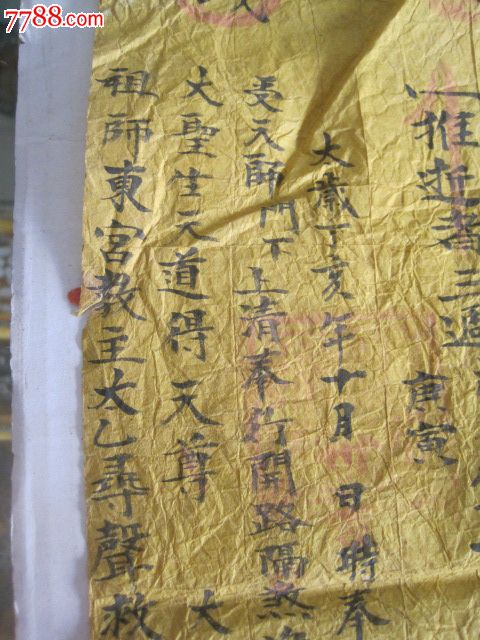 7788.com
推逝者三
庚寅
大歲丁亥年十月 日 時奉
受天師門下上清奉行開路隔煞
大聖生天道得天尊 大
祖師東宮教主太乙尋聲救